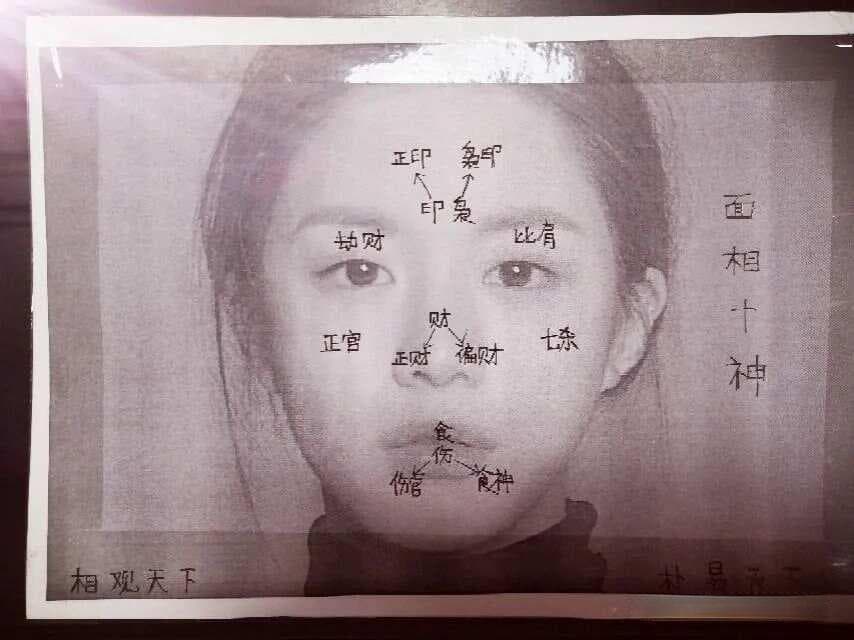 正印 枭印
印 枭
劫财 比肩
财
正官 正财 偏财 七杀
食
伤
伤官 食神
面相十神
相观天下
朴易天下